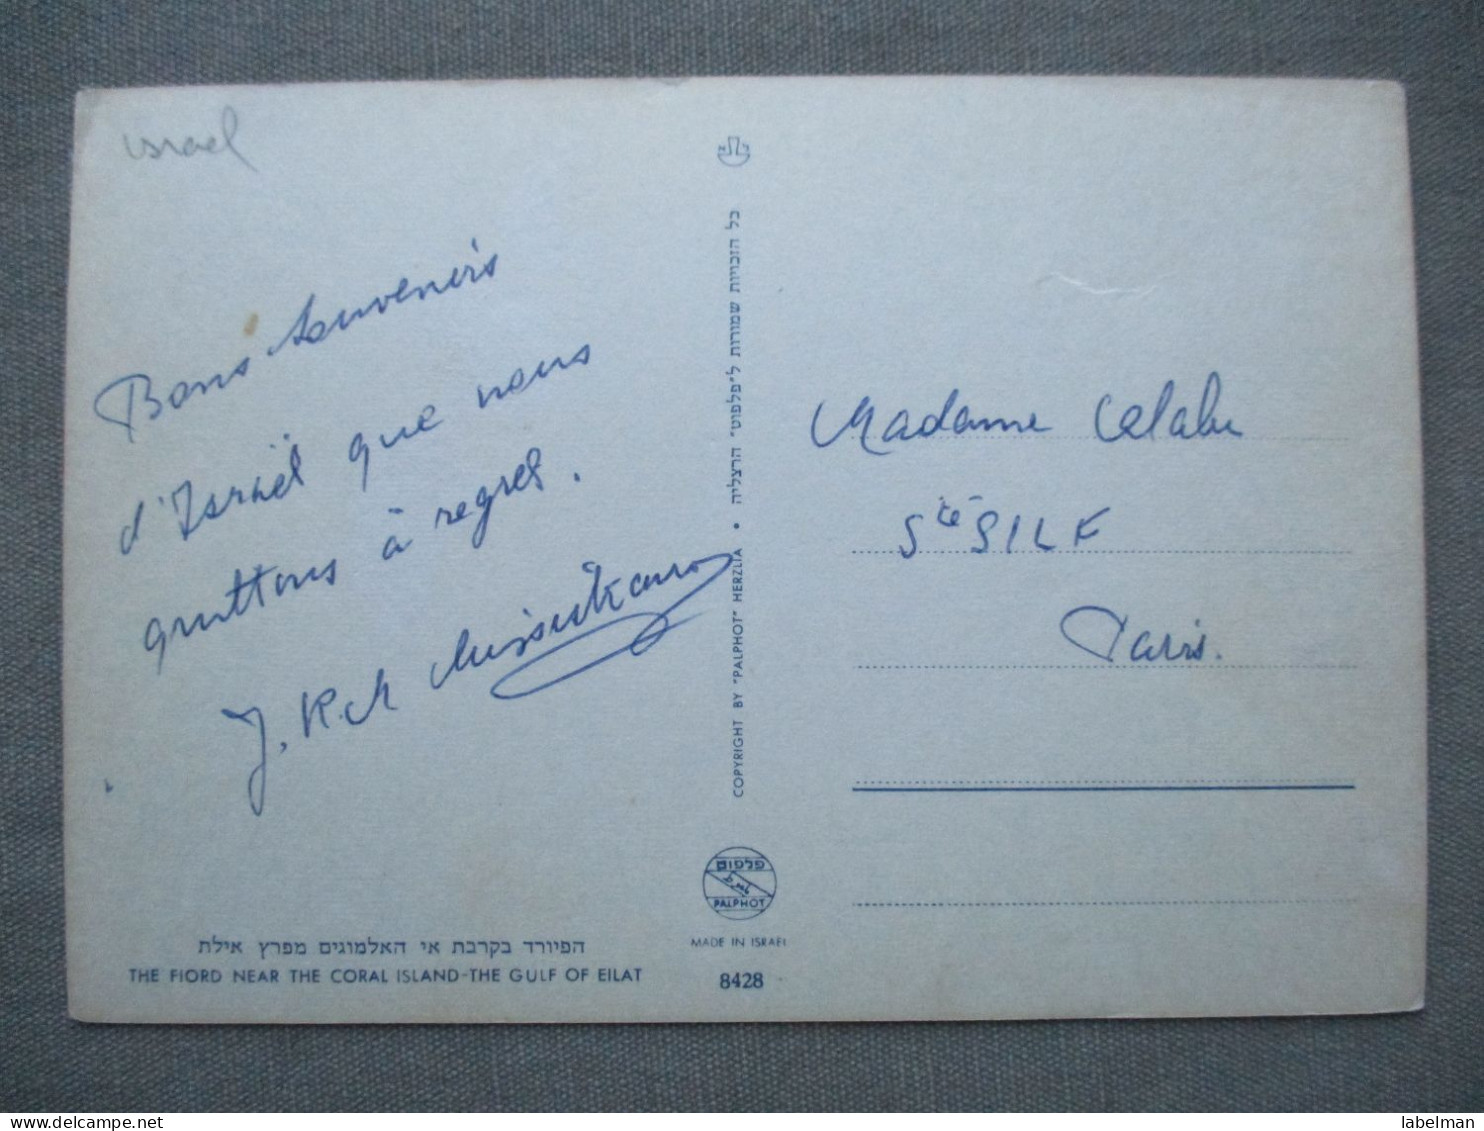 israel
Bons Souvenirs
d'Israël que nous
quittons à regret.
J. R.
Madame
Sté SILF
Paris.
כל הזכויות שמורות ל"פלפוט" הרצליה • COPYRIGHT BY "PALPHOT" HERZLIA
פלפוט
PALPHOT
MADE IN ISRAEL
8428
הפיורד בקרבת אי האלמוגים מפרץ אילת
THE FIORD NEAR THE CORAL ISLAND-THE GULF OF EILAT
labelman